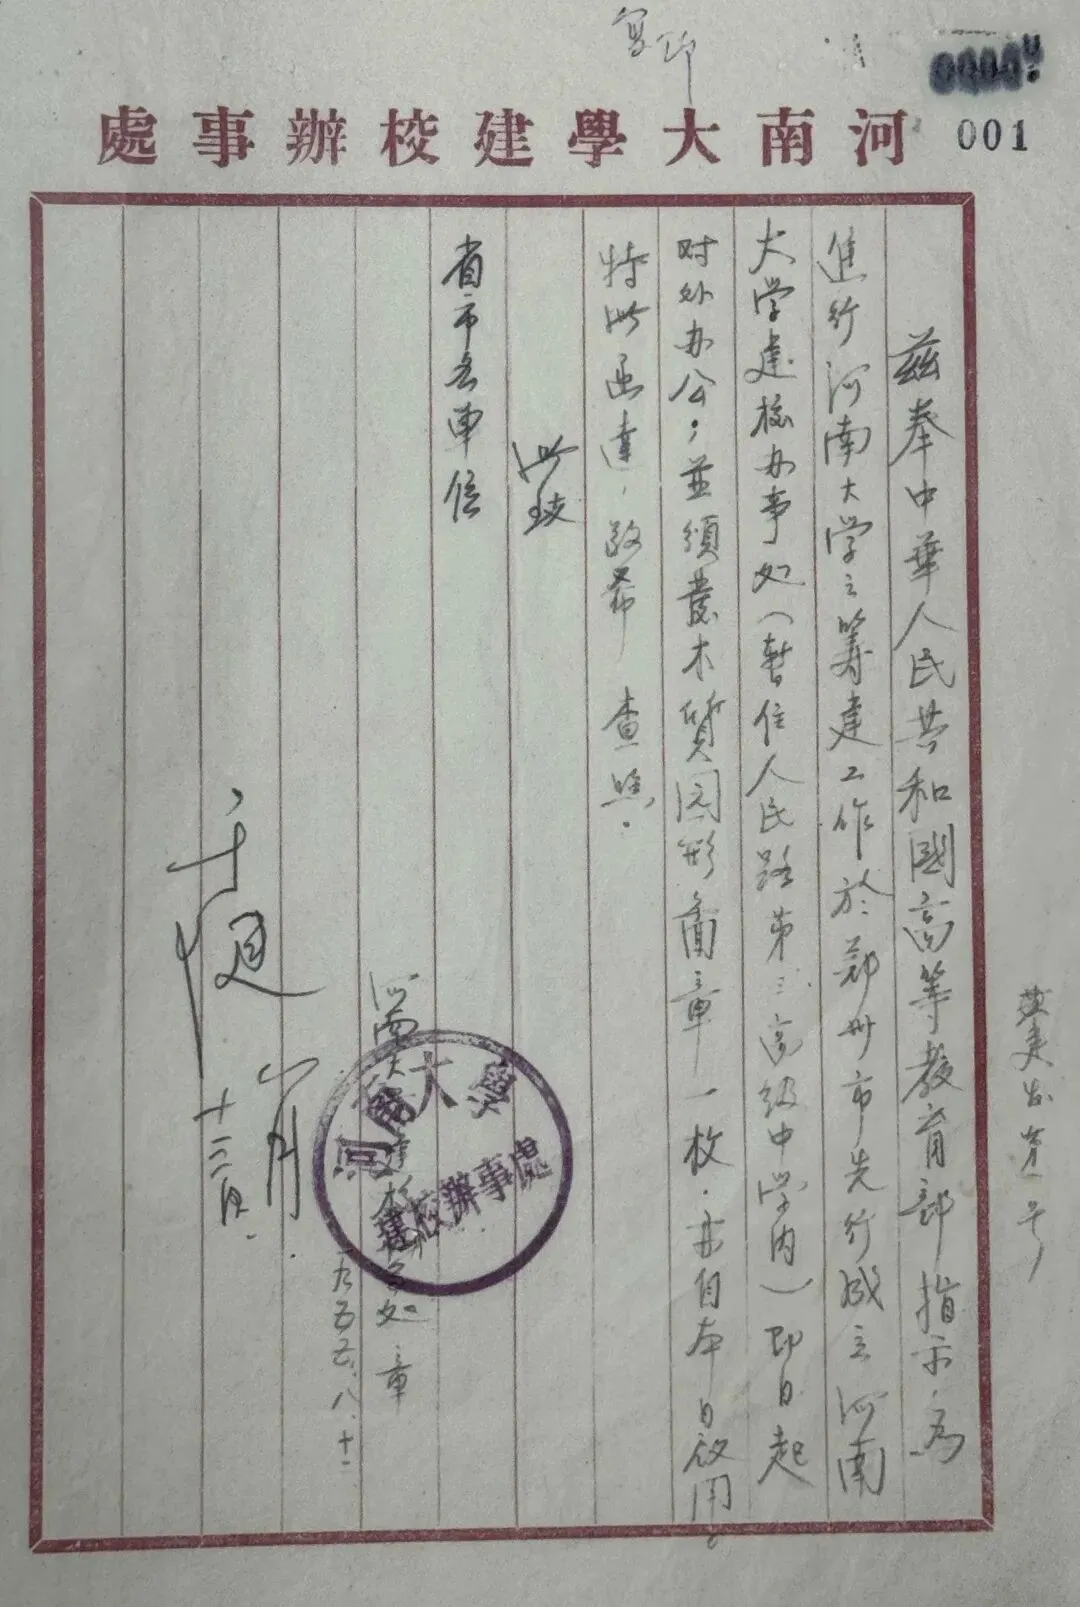 复印
001
河南大學建校辦事處
兹奉中華人民共和國高等教育部指示，为
進行河南大学之筹建工作於郑州市先行成立河南
大学建校办事处（暫住人民路第三高级中学内）即日起
对外办公；並頒發木質园形
章一枚，亦自本日啟用。
特此函達，敬希 查照．
此致
省市各单位
河南大学建校办事处章
一九五五、八、十二
河南大學
建校辦事處
八月
十二日
建
第一号